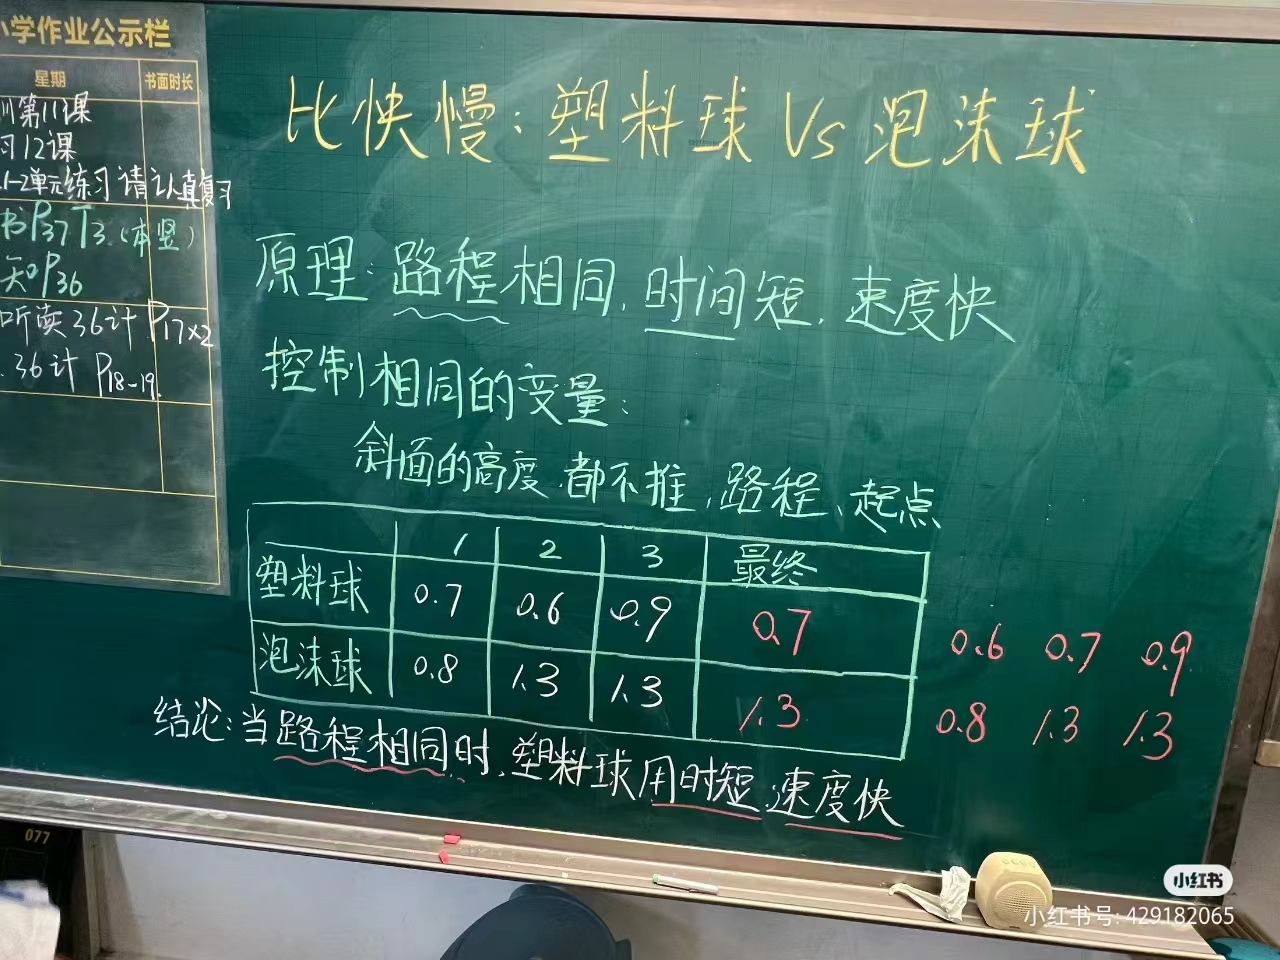 小学作业公示栏
星期 书面时长
第11课
习12课
1-2单元练习请认真复习
书P37T3(本竖)
知P36
听读36计P17×2
36计 P18-19
比快慢:塑料球Vs泡沫球
原理:路程相同,时间短,速度快
控制相同的变量:
斜面的高度、都不推、路程、起点
1 2 3 最终
塑料球 0.7 0.6 0.9 0.7
0.6 0.7 0.9
泡沫球 0.8 1.3 1.3 1.3
0.8 1.3 1.3
结论:当路程相同时,塑料球用时短,速度快
077
小红书
小红书号: 429182065